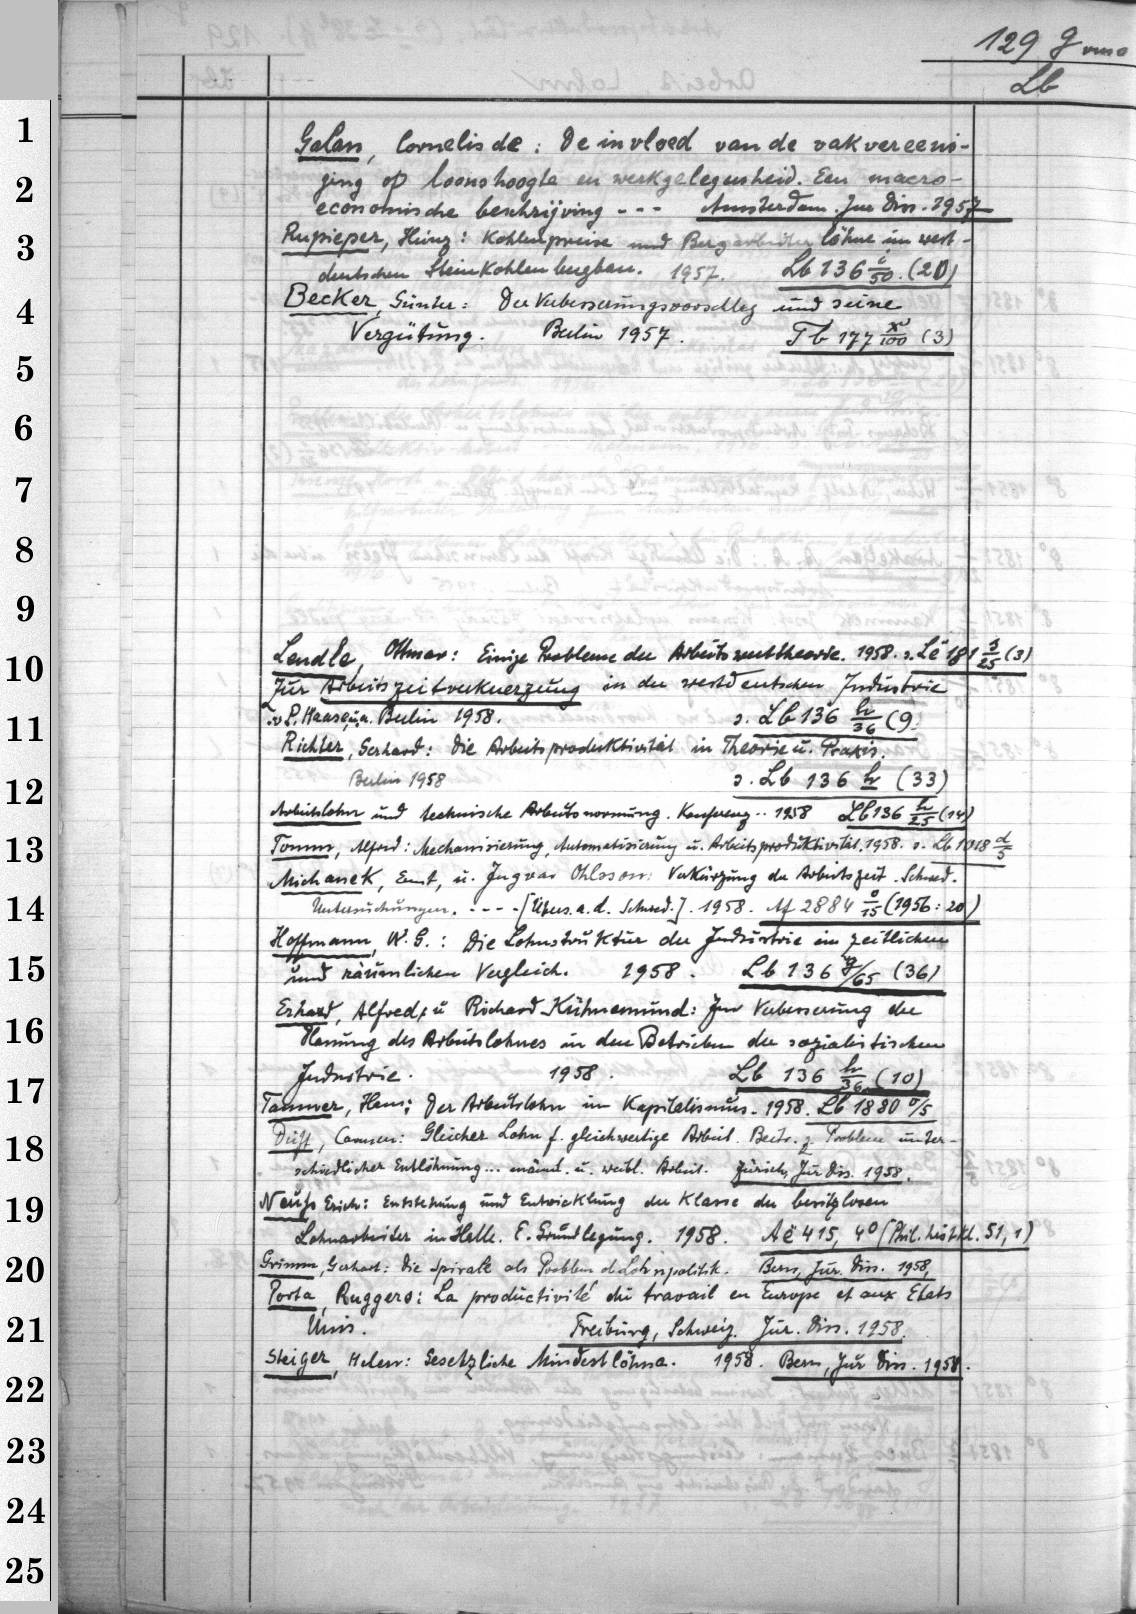 129 g
Lb
1
2
3
4
5
6
7
8
9
10
11
12
13
14
15
16
17
18
19
20
21
22
23
24
25
Galan, Cornelis de: De invloed van de vakvereeni-
ging op loonshoogte en werkgelegenheid. Een macro-
economische beschrijving --- Amsterdam. Jur Diss. 1957
Rupieper, Heinz: Kohlenpreise und Bergarbeiterlöhne im west-
deutschen Steinkohlenbergbau. 1957. Lb 136 i/50. (20)
Becker, Günter: Der Verbesserungsvorschlag und seine
Vergütung. Berlin 1957. Tb 177 x/100 (3)
Lendle, Ottmar: Einige Probleme der Arbeitswerttheorie. 1958. s. Lé 181 3/25 (3)
Zur Arbeitszeitverkuerzung in der westdeutschen Industrie
.v P. Haase, u. a. Berlin 1958. s. Lb 136 hr/36 (9.
Richter, Gerhard: Die Arbeitsproduktivität in Theorie u. Praxis.
Berlin 1958 s. Lb 136 hr (33)
Arbeitslohn und technische Arbeitsnormung. Konferenz.. 1958 Lb 136 hr/25 (14)
Tomm, Alfred: Mechanisierung, Automatisierung u. Arbeitsproduktivität. 1958. s. Lb 1018 d/5
Michanek, Ernt, u. Ingvar Ohlsson: Verkürzung der Arbeitszeit. Schwed.
Untersuchungen. ---- [Übers. a. d. Schwed.]. 1958. Af 2884 o/15 (1956:20)
Hoffmann, W. G.: Die Lohnstruktur der Industrie im zeitlichen
und räumlichen Vergleich. 1958. Lb 136 g/65 (36)
Erhard, Alfred, u Richard Kühnemund: Zur Verbesserung der
Planung des Arbeitslohnes in den Betrieben der sozialistischen
Industrie. 1958. Lb 136 hr/36 (10)
Tammer, Hans: Der Arbeitslohn im Kapitalismus. 1958. Lb 1880 o/5
Duft, Carmen: Gleicher Lohn f. gleichwertige Arbeit. Beitr. z. Problem unter-
schiedlicher Entlöhnung... männl. u. weibl. Arbeit. Zürich, Jur Dis. 1958.
Neuß, Erich: Entstehung und Entwicklung der Klasse der besitzlosen
Lohnarbeiter in Halle. E. Grundlegung. 1958. Aé 415, 4° (Phil. hist. Kl. 51, 1)
Grimm, Gerhart: Die Spirale als Problem d. Lohnpolitik. Bern, Jur. Diss. 1958.
Porta, Ruggero: La productivité du travail en Europe et aux Etats
Unis. Freiburg, Schweiz. Jur. Diss. 1958.
Steiger, Helen: Gesetzliche Mindestlöhne. 1958. Bern, Jur Diss. 1958.